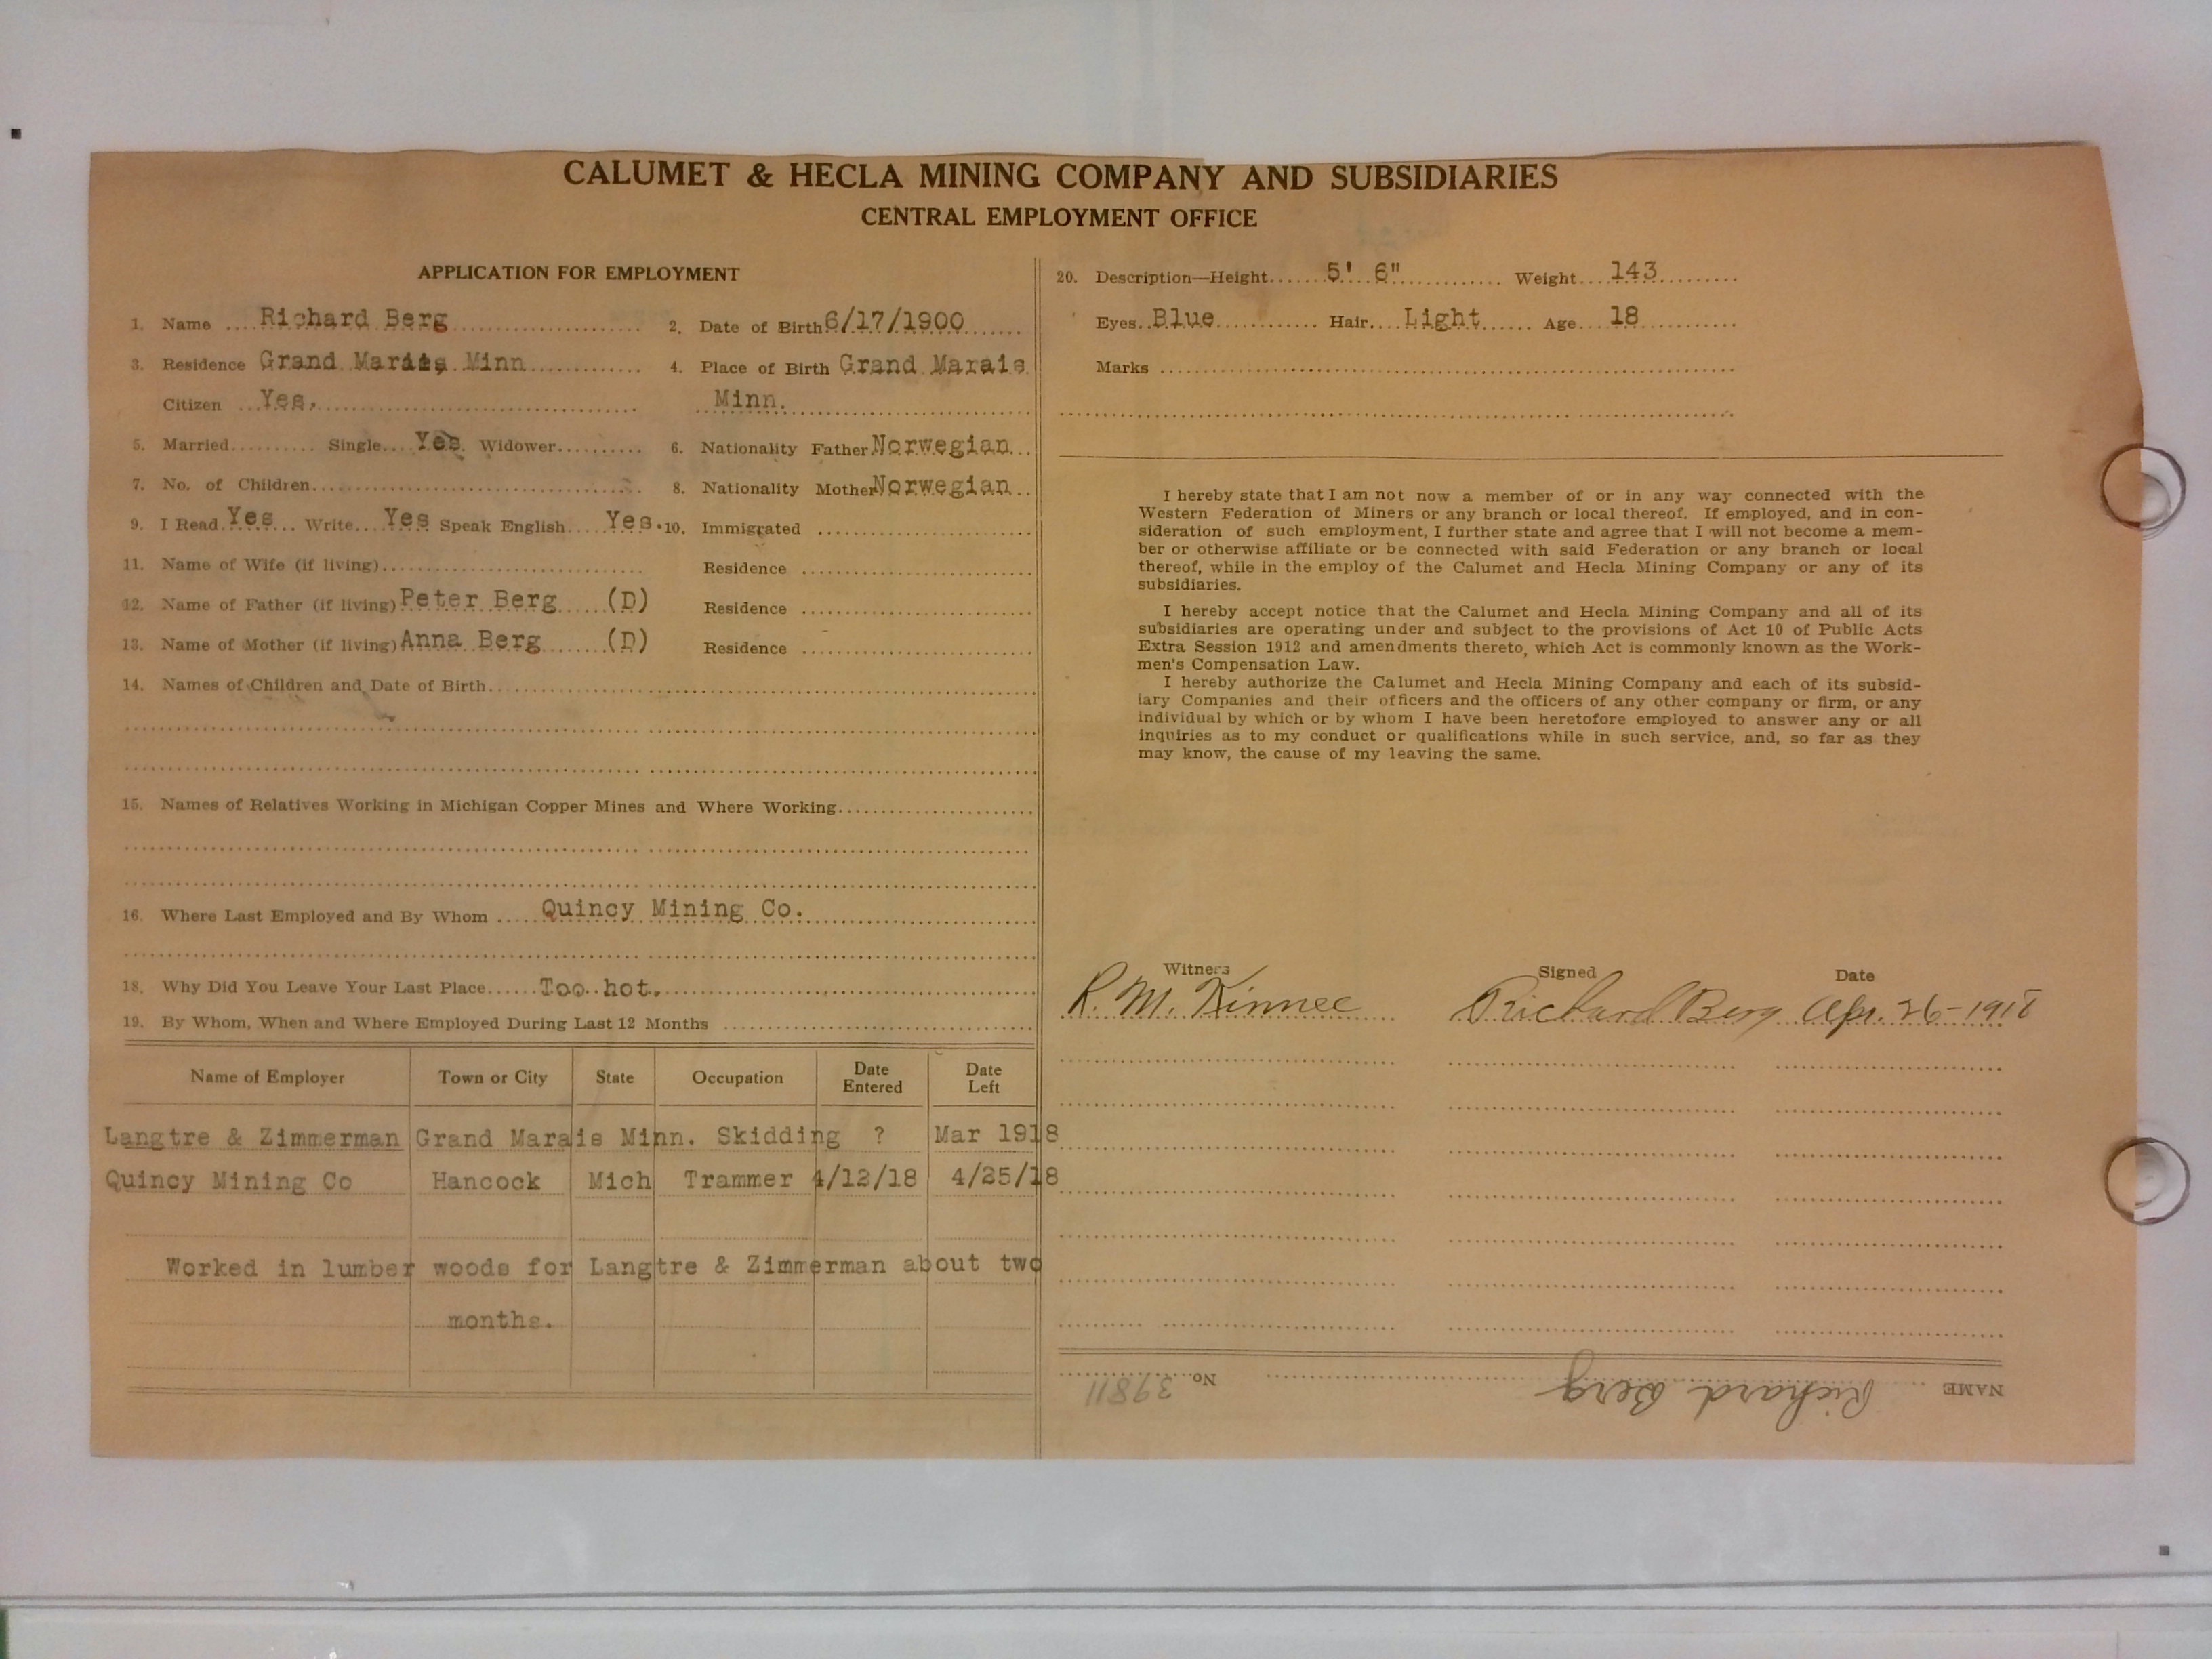 CALUMET & HECLA MINING COMPANY AND SUBSIDIARIES
CENTRAL EMPLOYMENT OFFICE
APPLICATION FOR EMPLOYMENT
1. Name Richard Berg 2. Date of Birth 6/17/1900
3. Residence Grand Marais, Minn 4. Place of Birth Grand Marais
Citizen Yes. Minn.
5. Married Single Yes. Widower 6. Nationality Father Norwegian
7. No. of Children 8. Nationality Mother Norwegian
9. I Read Yes Write Yes Speak English Yes. 10. Immigrated
11. Name of Wife (if living) Residence
12. Name of Father (if living) Peter Berg (D) Residence
13. Name of Mother (if living) Anna Berg (D) Residence
14. Names of Children and Date of Birth
15. Names of Relatives Working in Michigan Copper Mines and Where Working
16. Where Last Employed and By Whom Quincy Mining Co.
18. Why Did You Leave Your Last Place Too hot.
19. By Whom, When and Where Employed During Last 12 Months
Name of Employer Town or City State Occupation Date Entered Date Left
Langtre & Zimmerman Grand Marais Minn. Skidding ? Mar 1918
Quincy Mining Co Hancock Mich Trammer 4/12/18 4/25/18
Worked in lumber woods for Langtre & Zimmerman about two
months.
20. Description—Height 5' 6" Weight 143
Eyes Blue Hair Light Age 18
Marks
I hereby state that I am not now a member of or in any way connected with the
Western Federation of Miners or any branch or local thereof. If employed, and in con-
sideration of such employment, I further state and agree that I will not become a mem-
ber or otherwise affiliate or be connected with said Federation or any branch or local
thereof, while in the employ of the Calumet and Hecla Mining Company or any of its
subsidiaries.
I hereby accept notice that the Calumet and Hecla Mining Company and all of its
subsidiaries are operating under and subject to the provisions of Act 10 of Public Acts
Extra Session 1912 and amendments thereto, which Act is commonly known as the Work-
men's Compensation Law.
I hereby authorize the Calumet and Hecla Mining Company and each of its subsid-
iary Companies and their officers and the officers of any other company or firm, or any
individual by which or by whom I have been heretofore employed to answer any or all
inquiries as to my conduct or qualifications while in such service, and, so far as they
may know, the cause of my leaving the same.
Witness Signed Date
R. M. Kinnee Richard Berg Apr. 26-1918
NAME Richard Berg No. 39811